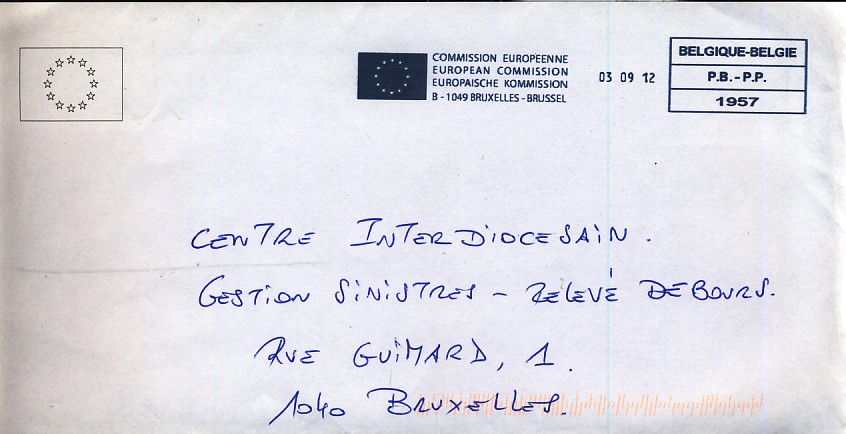 COMMISSION EUROPÉENNE
EUROPEAN COMMISSION
EUROPÄISCHE KOMMISSION
B - 1049 BRUXELLES - BRUSSEL
03 09 12
BELGIQUE-BELGIE
P.B. - P.P.
1957
CENTRE INTERDIOCESAIN.
GESTION SINISTRES - RELEVÉ DEBOURS.
RUE GUIMARD, 1.
1040 BRUXELLES.